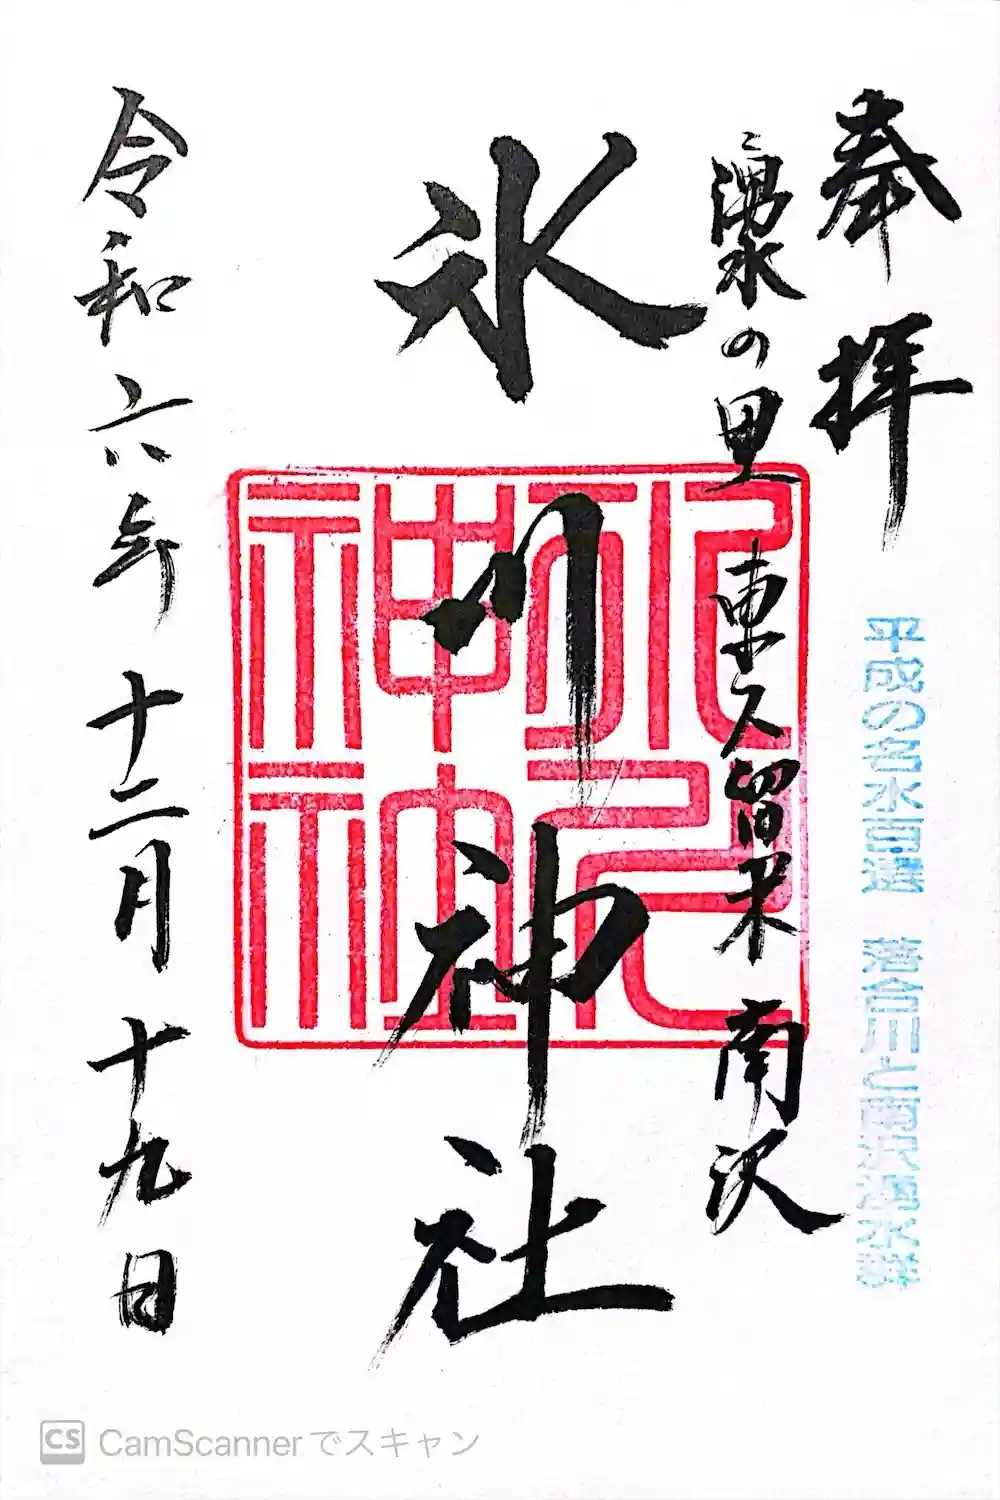 奉拝
平成の名水百選 落合川と南沢湧水群
湧水の里 東久留米 南沢
氷川神社
氷川神社
令和六年十二月十九日
CS CamScannerでスキャン